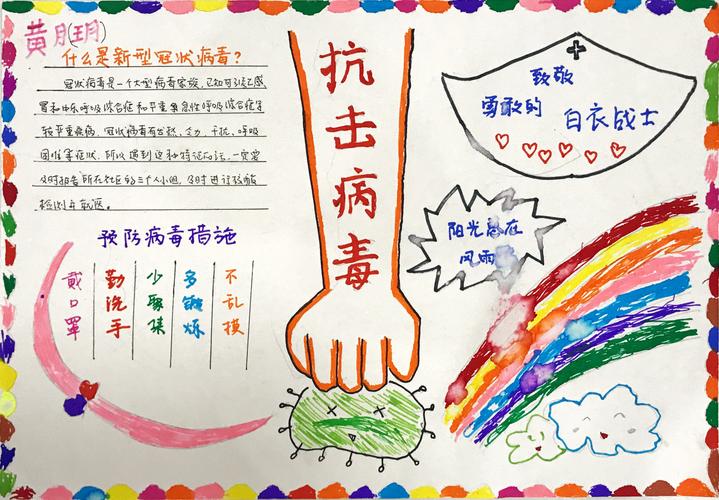 黄月(玥)
什么是新型冠状病毒?
冠状病毒是一个大型病毒家族,已知可引起感
冒和中东呼吸综合征和严重急性呼吸综合征等
较严重疾病。冠状病毒有发热、乏力、干咳、呼吸
困难等症状,所以遇到这种特征的话,一定要
及时报告所在社区的三个人小组,及时进行核酸
检测与就医。
预防病毒措施
戴口罩
勤洗手
少聚集
多锻炼
不乱摸
抗击病毒
致敬
勇敢的
白衣战士
阳光总在
风雨